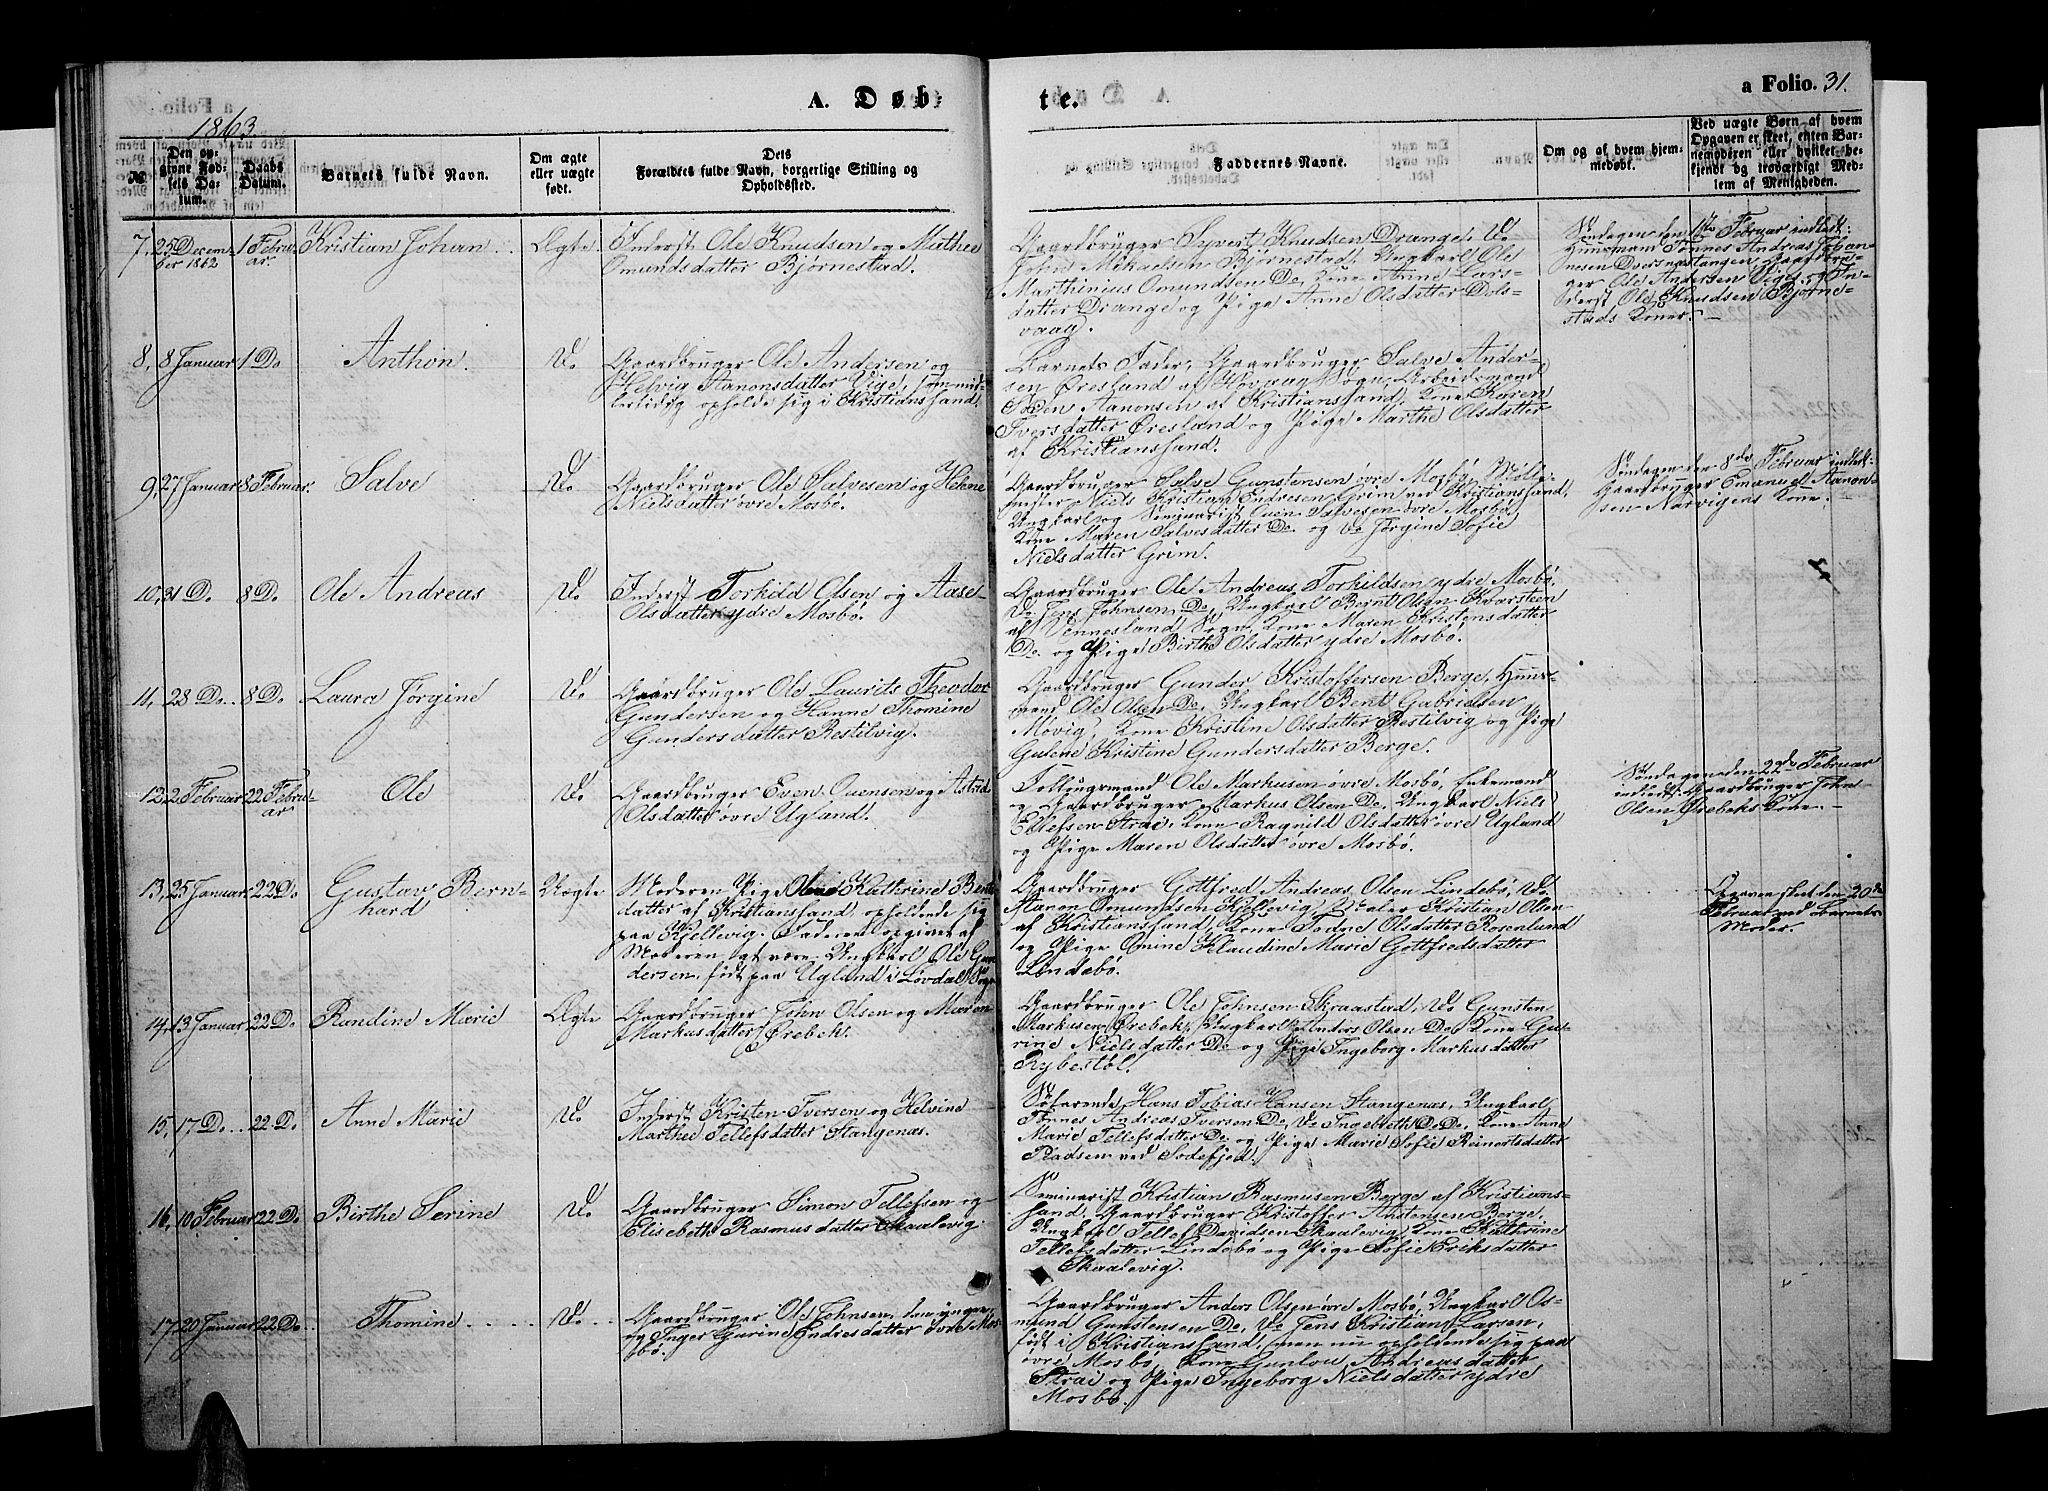 A. Døb
te.
a Folio. 31.
1863
No
Den opgivne Fødsels Datum.
Daabs Datum.
Barnets fulde Navn.
Om ægte eller uægte født.
Forældres fulde Navn, borgerlige Stilling og Opholdssted.
Faddernes Navne.
Om og af hvem hjemmedøbt.
Ved uægte Børn af hvem Opgaven er skeet, enten Barnemoderen eller hvilket bekjendt og troværdigt Medlem af Menigheden.
7, 25 Decem- 1 Febru- Kristian Johan Ægte Inderst Ole Knudsen og Mathee
ber 1862 ar. Omundsdatter Bjørnestad.
Gaardbruger Syvert Knudsen Drange, Do
John Mikaelsen Bjørnestad, Ungkarl Ole
Marthinius Omundsen Do, Kone Anne Lars-
datter Drange og Pige Anne Olsdatter Dols-
vaag.
Søndagen den 1ste Februar indledt:
Huusmand Tønnes Andreas Johan-
nesen Dversnæstangen, Gaardbru-
ger Ole Andersen Vige, og In-
derst Ole Knudsen Bjørne-
stads Koner. –
8, 8 Januar 1 Do Anthon. Do Gaardbruger Ole Andersen og
Helvig Aanonsdatter Vige, som mid-
lertidig opholde sig i Kristianssand.
Barnets Fader, Gaardbruger Salve Ander-
sen Øresland af Høvaag Sogn, Arbeidsmand
Aanonsen af Kristianssand, Kone Karen
Iversdatter Øresland og Pige Marthe Olsdatter
af Kristianssand.
9, 27 Januar 8 Februar. Salve Do Gaardbruger Ole Salvesen og Helene
Nielsdatter øvre Mosbø.
Gaardbruger Salve Gunstensen øvre Mosbø, Møll-
mester Niels Kristian Endresen Grim ved Kristianssand,
Ungkarl og Seminarist Ouen Salvesen øvre Mosbø,
Kone Maren Salvesdatter Do og Do Jørgine Sofie
Nielsdatter Grim.
Søndagen den 8de Februar indledt:
Gaardbruger Emanuel Aanon-
sen Narvigens Kone.
10, 31 Do. 8 Do. Ole Andreas Do Inderst Torkild Olsen og Aase
Olsdatter ydre Mosbø.
Gaardbruger Ole Andreas Torkildsen ydre Mosbø,
Do Jens Johnsen Do, Ungkarl Bernt Olsen Kvarsteen
af Vennesland Sogn, Kone Maren Kristensdatter
Do og Pige Birthe Olsdatter ydre Mosbø.
11, 28 Do.. 8 Do. Laura Jørgine Do Gaardbruger Ole Laurits Theodor
Gundersen og Hanne Thomine
Gundersdatter Restilvig.
Gaardbruger Gunder Kristoffersen Berge, Huus-
mand Ole Olsen Do, Ungkarl Bent Gabrielsen
Møvig, Kone Kristine Olsdatter Restilvig og Pige
Gulene Kristine Gundersdatter Berge.
12, 2 Februar 22 Febru- Ole Do Gaardbruger Even Ouensen og Astrid
ar. Olsdatter øvre Ugland.
Ole Markusen øvre Mosbø, Enkemand
og Gaardbruger Markus Olsen Do, Ungkarl Niels
Ellefsen Strai, Kone Ragnild Olsdatter øvre Ugland
og Pige Maren Olsdatter øvre Mosbø.
Søndagen den 22de Februar
indledt: Gaardbruger John
Olsen Ørebeks Kone. –
13, 25 Januar 22 Do Gustav Bern- Uægte Moderen Pige Kathrine Bent-
hard datter af Kristianssand, opholdende sig
paa Kjellevig. Faderen opgivet af
Moderen at være Ungkarl Ole Gun-
dersen, født paa Ugland i Løvdals Sogn
Gaardbruger Gottfred Andreas Olsen Lindebø, Do
Aanon Omundsen Kjellevig, Maler Kristian Olsen
af Kristianssand, Kone Todne Olsdatter Rosenlund
og Pige Omine Klaudine Marie Gottfredsdatter
Lindebø.
Opgaven skeet den 20de
Februar ved Barnets
Moder.
14, 13 Januar 22 Do Randine Marie Ægte Gaardbruger John Olsen og Maren
Markusdatter Ørebek.
Gaardbruger Ole Johnsen Skraastad, Do Gunsten
Markusen Ørebek, Ungkarl Anders Olsen Do, Kone Gu-
rine Nielsdatter Do og Pige Ingeborg Markusdatter
Rybestøl.
15, 17 Do... 22 Do. Anne Marie Do Inderst Kristen Iversen og Helvine
Marthee Tellefsdatter Stangenæs.
Søfarende Hans Tobias Hansen Stangenæs, Ungkarl
Tønnes Andreas Iversen Do, Do Ingebreth Do Do, Kone Anne
Marie Tellefsdatter Do og Pige Marie Sofie Reinertsdatter
ved Todefjod.
16, 10 Februar 22 Do Birthe Serine Do Gaardbruger Simon Tellefsen og
Elisebeth Rasmusdatter Skaalevig.
Seminarist Kristian Rasmusen Berge af Kristians-
sand, Gaardbruger Kristoffer Anstensen Berge,
Ungkarl Tellef Davidsen Skaalevig, Kone Kathrine
Tellefsdatter Lindebø og Pige Sofie Eriksdatter
Skaalevig.
17, 20 Januar 22 Do... Thomine.... Do.. Gaardbruger Ole Johnsen, den yngre,
og Inger Gurine Endresdatter øvre Mos-
bø.
Gaardbruger Anders Olsen øvre Mosbø, Ungkarl Os-
mund Gunstensen Do, Do Jens Kristian Larsen,
født i Kristianssand, men nu opholdende sig paa
øvre Mosbø, Kone Gunlou Andreasdatter
Strai og Pige Ingeborg Nielsdatter ydre
Mosbø.